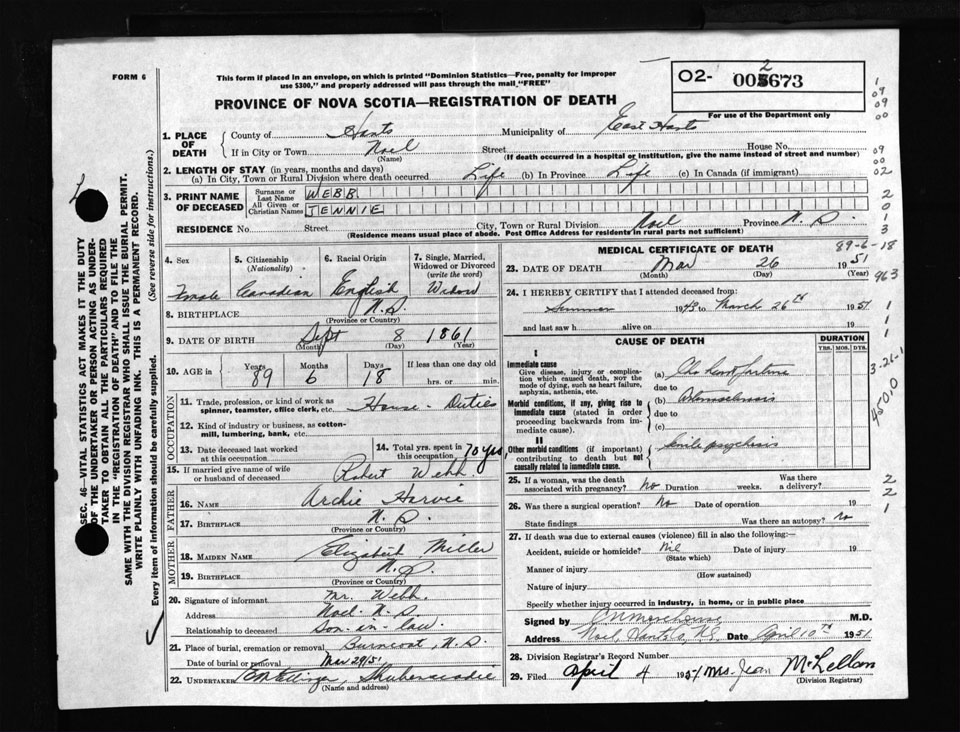 FORM 6
This form if placed in an envelope, on which is printed "Dominion Statistics—Free, penalty for improper
use $300," and properly addressed will pass through the mail "FREE"
O2- 2
005673
For use of the Department only
PROVINCE OF NOVA SCOTIA—REGISTRATION OF DEATH
1. PLACE OF DEATH
County of Hants Municipality of East Hants
If in City or Town Noel Street House No.
(Name) (If death occurred in a hospital or institution, give the name instead of street and number)
2. LENGTH OF STAY (in years, months and days)
(a) In City, Town or Rural Division where death occurred Life (b) In Province Life (c) In Canada (if immigrant)
3. PRINT NAME OF DECEASED
Surname or Last Name WEBB
All Given or Christian Names JENNIE
RESIDENCE No. Street City, Town or Rural Division Noel Province N.S.
(Residence means usual place of abode. Post Office Address for residents in rural parts not sufficient)
4. Sex 5. Citizenship (Nationality) 6. Racial Origin 7. Single, Married, Widowed or Divorced (write the word)
Female Canadian English Widow
8. BIRTHPLACE N.S.
(Province or Country)
9. DATE OF BIRTH Sept 8 1861
(Month) (Day) (Year)
10. AGE in Years Months Days If less than one day old
89 6 18 hrs. or min.
OCCUPATION
11. Trade, profession, or kind of work as spinner, teamster, office clerk, etc. House-Duties
12. Kind of industry or business, as cotton-mill, lumbering, bank, etc.
13. Date deceased last worked at this occupation
14. Total yrs. spent in this occupation 70 yrs
15. If married give name of wife or husband of deceased Robert Webb
FATHER
16. NAME Archie Harvie
17. BIRTHPLACE N.S.
(Province or Country)
MOTHER
18. MAIDEN NAME Elizabeth Miller
19. BIRTHPLACE N.S.
(Province or Country)
20. Signature of informant Mr. Webb
Address Noel N.S.
Relationship to deceased Son-in-law
21. Place of burial, cremation or removal Burncoat, N.S.
Date of burial or removal Mar 29/51
22. UNDERTAKER Ettinger, Shubenacadie
(Name and address)
MEDICAL CERTIFICATE OF DEATH
89-6-18
23. DATE OF DEATH Mar 26 1951
(Month) (Day) (Year)
24. I HEREBY CERTIFY that I attended deceased from:
Summer 1943 to March 26th 1951
and last saw h alive on 19
CAUSE OF DEATH
DURATION
YRS. MOS. DYS.
I
Immediate cause
Give disease, injury or complication which caused death, not the mode of dying, such as heart failure, asphyxia, asthenia, etc.
(a) Chr heart failure
due to
Morbid conditions, if any, giving rise to immediate cause (stated in order proceeding backwards from immediate cause).
(b) Arteriosclerosis
due to
(c)
II
Other morbid conditions (if important) contributing to death but not causally related to immediate cause.
senile psychosis
25. If a woman, was the death associated with pregnancy? No Duration weeks. Was there a delivery?
26. Was there a surgical operation? No Date of operation 19
State findings Was there an autopsy? No
27. If death was due to external causes (violence) fill in also the following:—
Accident, suicide or homicide? Nil Date of injury 19
(State which)
Manner of injury
(How sustained)
Nature of injury
Specify whether injury occurred in industry, in home, or in public place
Signed by M.D.
Address Noel, Hants Co, N.S. Date April 10th 1951
28. Division Registrar's Record Number
29. Filed April 4 1951 Mrs. Jean McLellan
(Division Registrar)
SEC. 46—VITAL STATISTICS ACT MAKES IT THE DUTY
OF THE UNDERTAKER OR PERSON ACTING AS UNDER-
TAKER TO OBTAIN ALL THE PARTICULARS REQUIRED
IN THE "REGISTRATION OF DEATH" AND TO FILE THE
SAME WITH THE DIVISION REGISTRAR WHO SHALL ISSUE THE BURIAL PERMIT.
WRITE PLAINLY WITH UNFADING INK. THIS IS A PERMANENT RECORD.
Every item of information should be carefully supplied. (See reverse side for instructions.)
1
09
09
00
09
00
02
2
0
1
3
963
1
1
1
3-26-1
4500
2
2
1